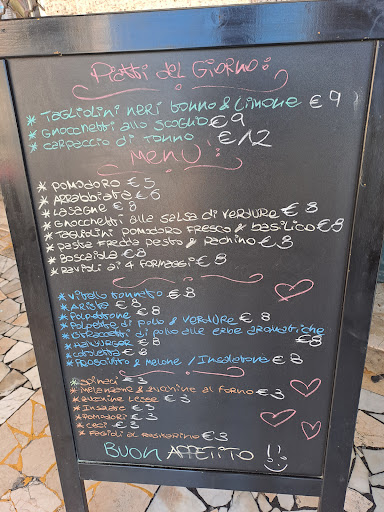 Piatti del Giorno:
* Tagliolini neri tonno & Limone €9
* Gnocchetti allo scoglio €9
* Carpaccio di Tonno €12
Menu
* Pomodoro €5
* Arrabbiata €6
* Lasagne €8
* Gnocchetti alla salsa di verdure €8
* Tagliolini pomodoro fresco & basilico €8
* Pasta fredda pesto & €8
* Boscaiola €8
* Ravioli ai 4 formaggi €8
* Vitello tonnato €8
* Arista €8
* Polpettone €8
* Polpette di pollo & verdure €8
* Straccetti di pollo alle erbe aromatiche €8
* Hamburger €8
* Cotoletta €8
* Prosciutto & melone / Insalatona €8
* Spinaci €3
* Melanzane & zucchine al forno €3
* Zucchine lesse €3
* Insalate €3
* Pomodori €3
* Ceci €3
* Fagioli al rosmarino €3
Buon Appetito !!